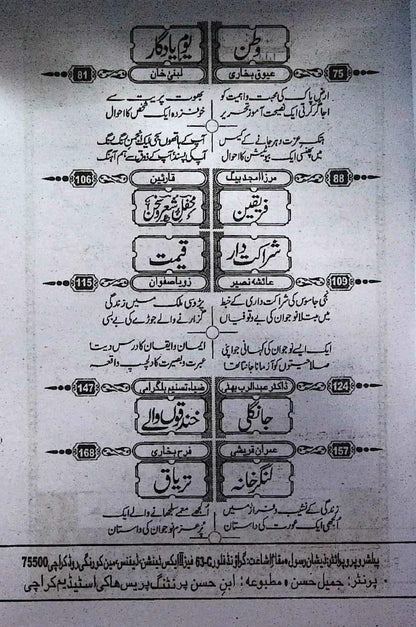 وطن
یوم یادگار
75
عیوق بخاری
لبنیٰ خان
81
ارضِ پاک کی محبت و اہمیت کو
اجاگر کرتی ایک نصیحت آموز تحریر
بھوت پریت سے
خوفزدہ ایک شخص کا احوال
ہتک عزت و ہرجانے کے کیس
میں پھنسی ایک بیوٹیشن کا احوال
آپ کے ہاتھوں سجی ایک انجمن رنگ رنگ
آپ کی پسند آپ کے ذوق سے ہم آہنگ
88
مرزا امجد بیگ
قارئین
106
فریقین
محفل شعر و سخن
شراکت دار
قیمت
109
عائشہ نصیر
زویا صفوان
111
نجی جاسوس کی شراکت داری کے خبط
میں مبتلا نوجوان کی بے وقوفیاں
پڑوسی ملک میں زندگی
گزارنے والے جوڑے کی بے بسی
ایک ایسے نوجوان کی کہانی جو اپنی
صلاحیتوں کو آزمانا جانتا تھا
ایمان و ایقان کا درس دیتا
عبرت و بصیرت کا دلچسپ واقعہ
124
ڈاکٹر عبدالرب بھٹی
ضیاء تسنیم بلگرامی
147
جانگلی
خندقوں والے
157
عمران قریشی
فرح بخاری
168
لنگر خانہ
تریاق
زندگی کے نشیب و فراز میں
الجھی ایک عورت کی داستان
الجھے معمے سلجھانے والے ایک
پُرعزم نوجوان کی داستان
پبلشر و پروپرائٹر: ذیشان رسول مقام اشاعت: گراؤنڈ فلور 63-C فیز II ایکس ٹینشن، ڈیفنس، مین کورنگی روڈ کراچی 75500
پرنٹر: جمیل حسن • مطبوعہ: ابن حسن پرنٹنگ پریس ہاکی اسٹیڈیم کراچی